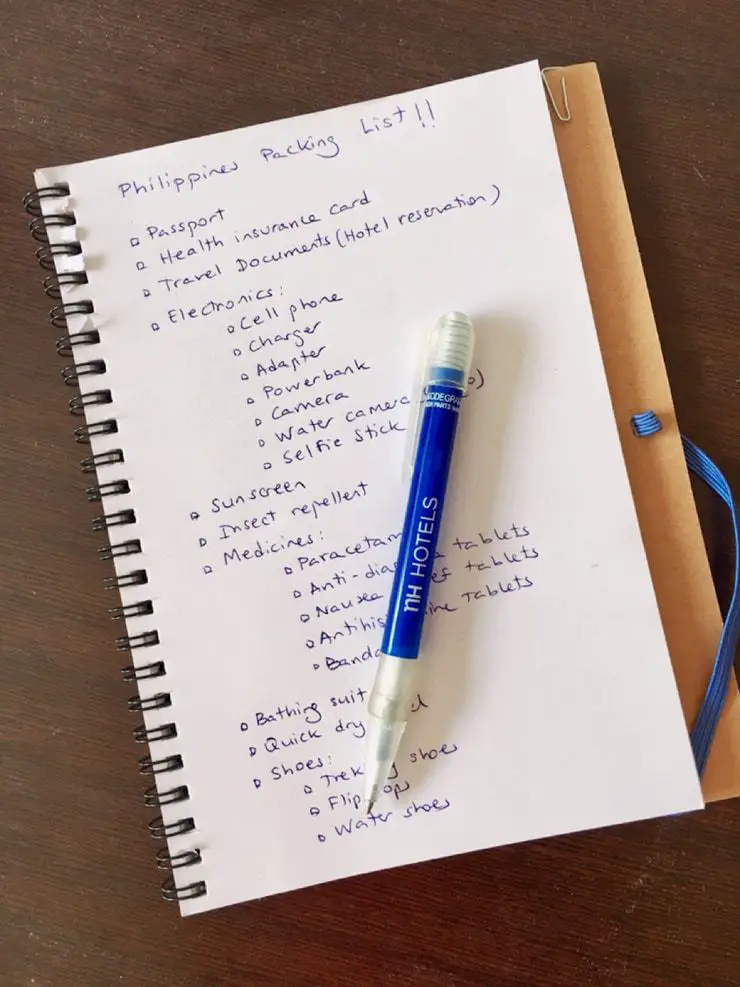 Philippines Packing List!!
Passport
Health insurance card
Travel Documents (Hotel reservation)
Electronics:
Cell phone
Charger
Adapter
Powerbank
Camera
Water camera
Selfie stick
Sunscreen
Insect repellent
Medicines:
Paracetam
Anti-dia tablets
Nausea ef tablets
Antihis ine Tablets
Banda
Bathing suit
Quick dry el
Shoes:
Trek g shoes
Flip ops
Water shoes
nH HOTELS